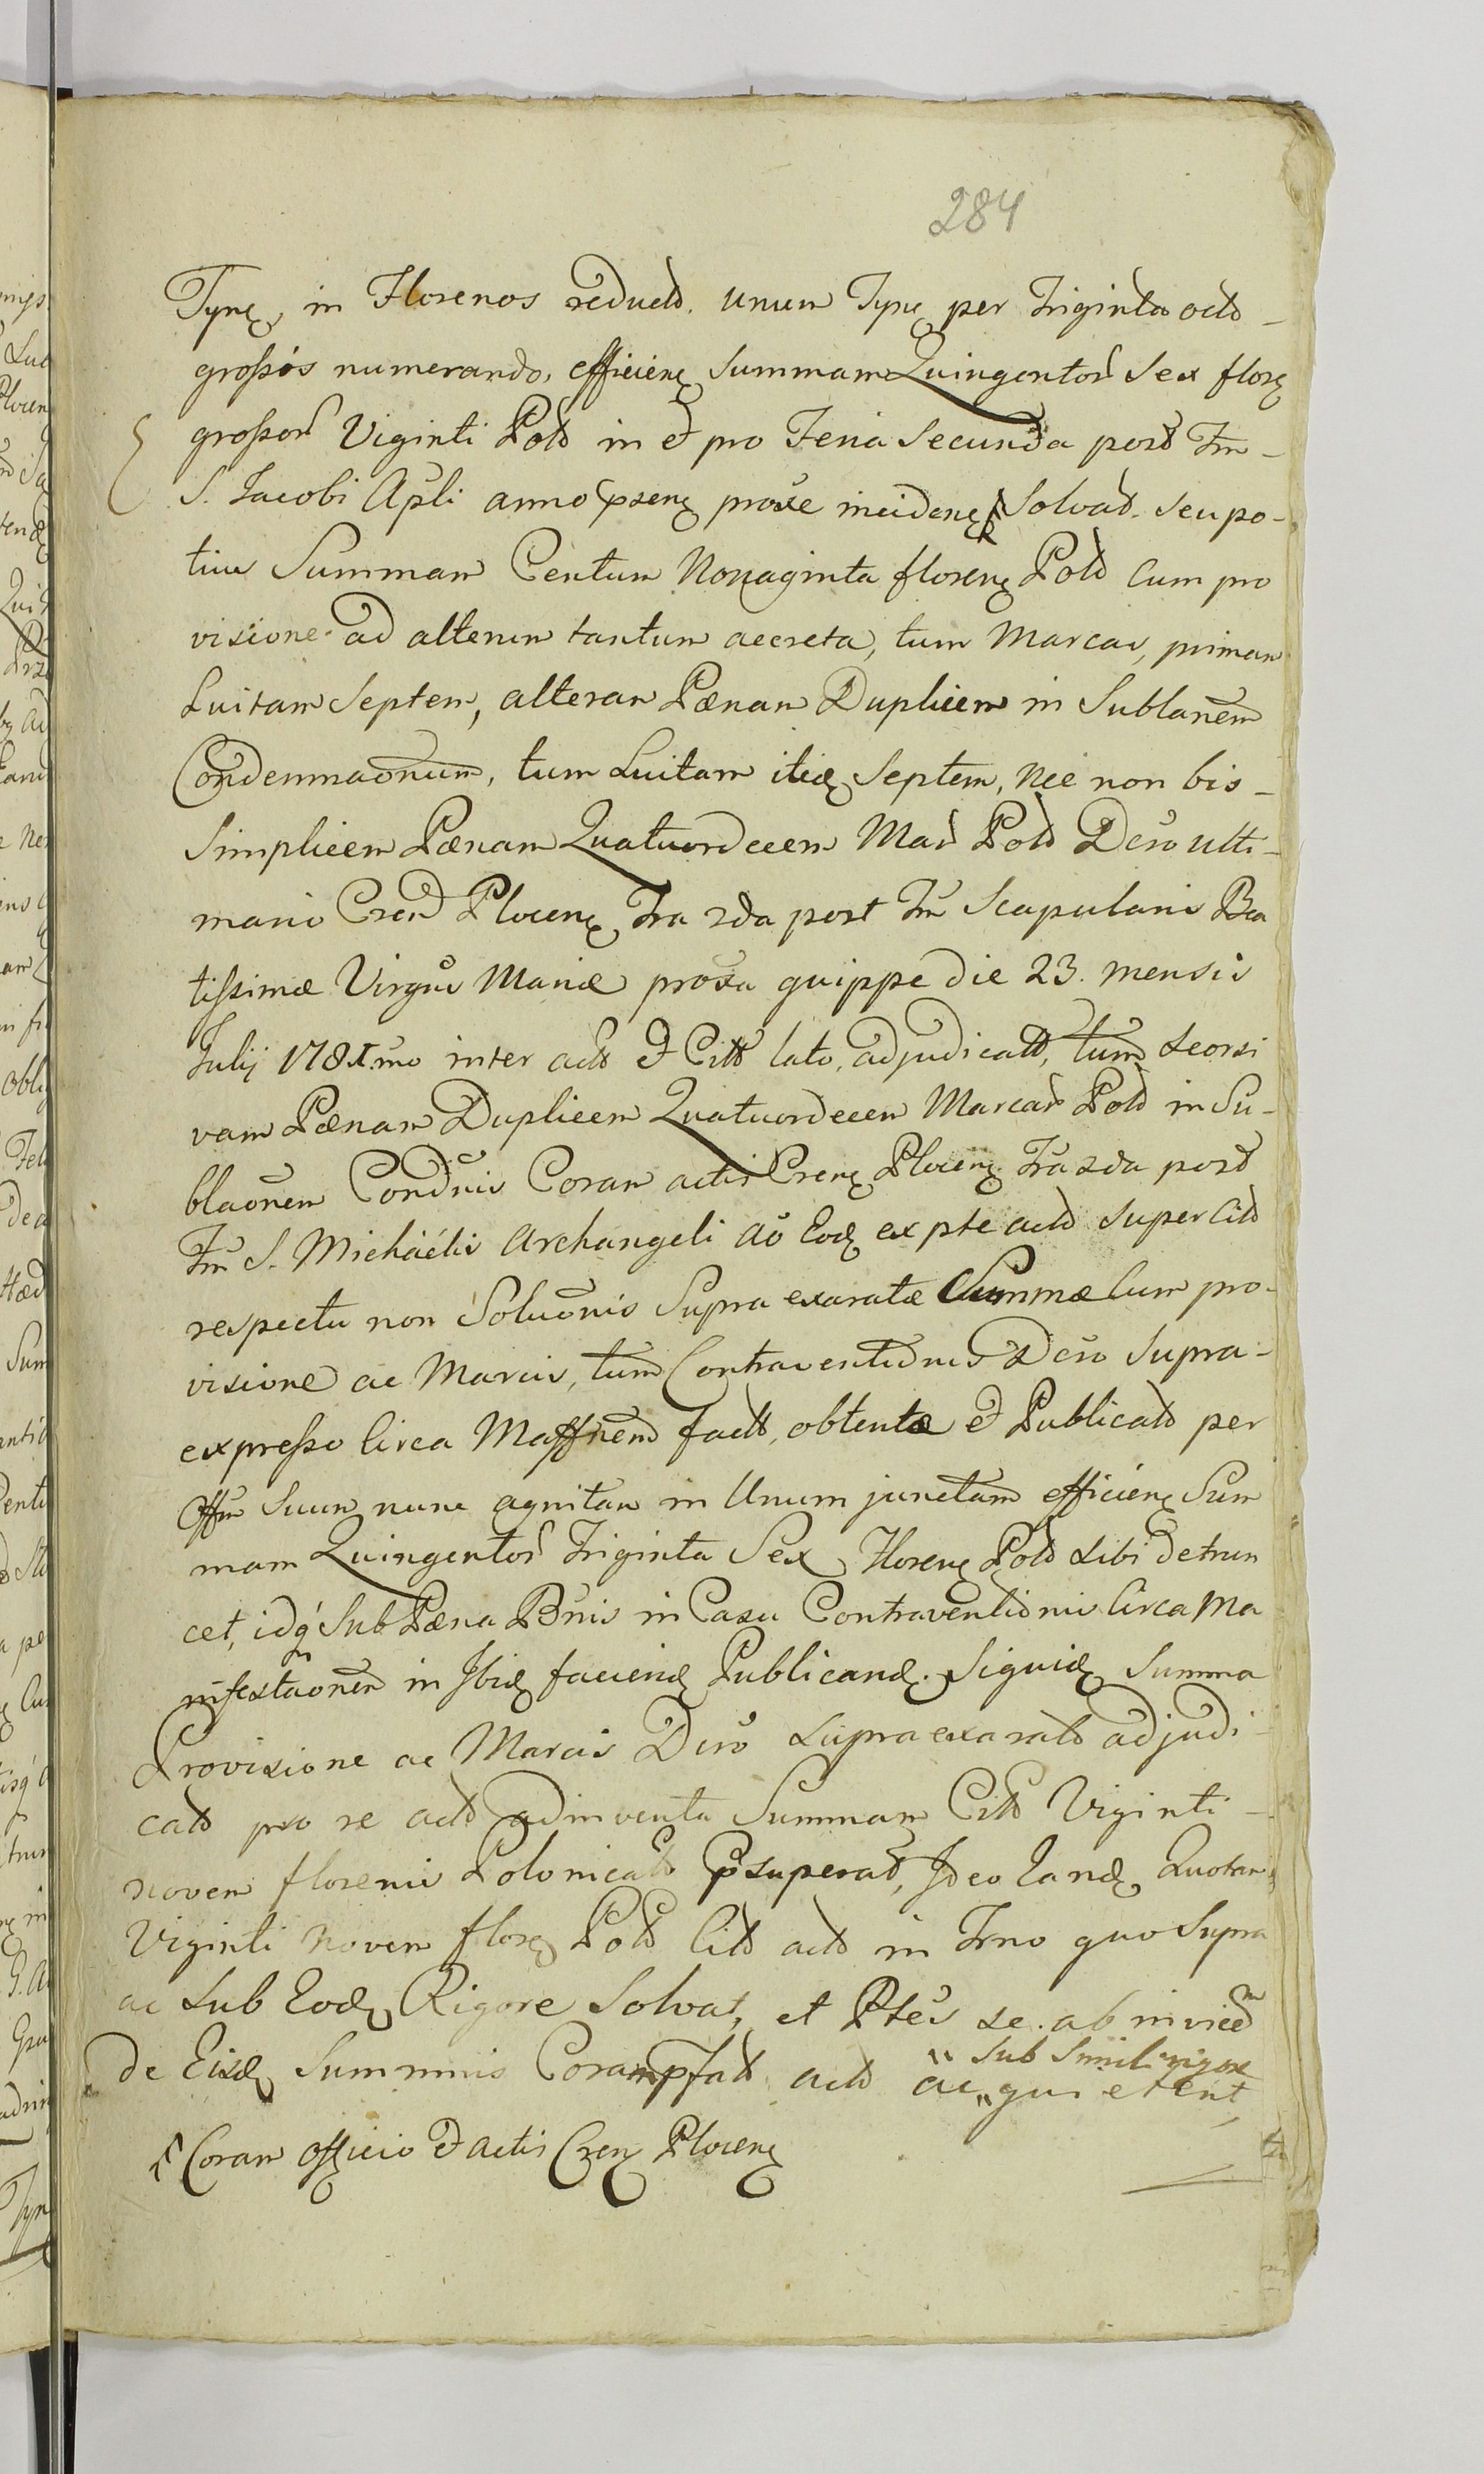 284
Tynę, in Florenos reducto. unum Tynę per Triginta octo -
großos numerando, efficienę summam Quingentor Sex florę
großor Viginti Polo in et pro Feria Secunda post Fm -
S. Jacobi Apli anno prsenę proxe incidenę Solvat. seu po-
tius Summam Centum Nonaginta florenę Polo cum pro
visione ad alterum tantum accreta, tum Marcas, primam
Luitam Septem, alteram Pænam Duplicem in Sublanem
Condemnaonum, tum Luitam itidę Septem, nec non bis -
Simplicem Pænam Quatuordecem Mar Polo Dcro ulti-
mario Cren Plocenę Fra 2da post Fm Scapularis Bea
tißimæ Virgnis Mariæ proxa quippe die 23. mensis
Julij 1781.mo inter acto et Citt lato, adjudicatt, tum seorsi
vam Pænam Duplicem Quatuordecem Marcar Polo in Su-
blaonem Condnis Coram actis Crenę Plocenę Fra 2da post
Fm S. Michäélis Archangeli Ao Eodę ex pte acto super Cito
respectu non Soluonis Supra exaratæ Summæ Cum pro-
visione ac Marcis, tum Contraventionis Dcro Supra-
expreßo Circa Maffnem factt, obtentæ et Publicato per
Offm Suum nunc agnitam in Unum junctam efficienę Sum
mam Quingentor Triginta Sex Florenę Polo sibi detrun
cet, idq Sub Pæna Bnis in Casu Contraventionis Circa Ma
nifestaonem in Ibidę faciendę Publicandę. Siquidę Summa
Provisione ac Marcis Dcro supra exarato adjudi-
cato pro re acto adinventa Summam Cito Viginti -
novem florenis Polonicalo Superat, Ideo Eandę Quotam
Viginti Novem florę Polo Cito acto in Fmno quo Supra
ac sub Eodę Rigore Solvat, et Ptes se ab invicem
de Eisdę Summis Coram pfato acto ac " sub simili rigore " quietent
Coram officio et actis Crenę Plocenę